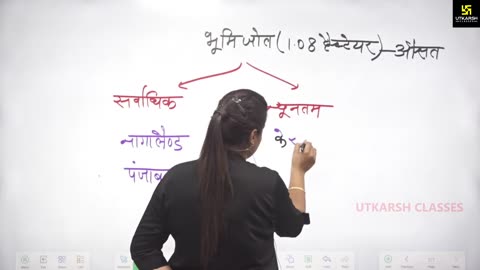 UTKARSH CLASSES
भूमि जोत (1.08 हैक्टेयर) - औसत
सर्वाधिक
न्यूनतम
नागालैण्ड
पंजाब
UTKARSH CLASSES